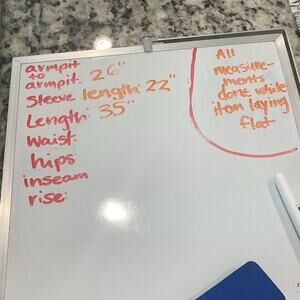 armpit
to
armpit: 26"
Sleeve length: 22"
Length: 35"
Waist:
hips
inseam
rise:
All
measure-
ments
done while
item laying
flat